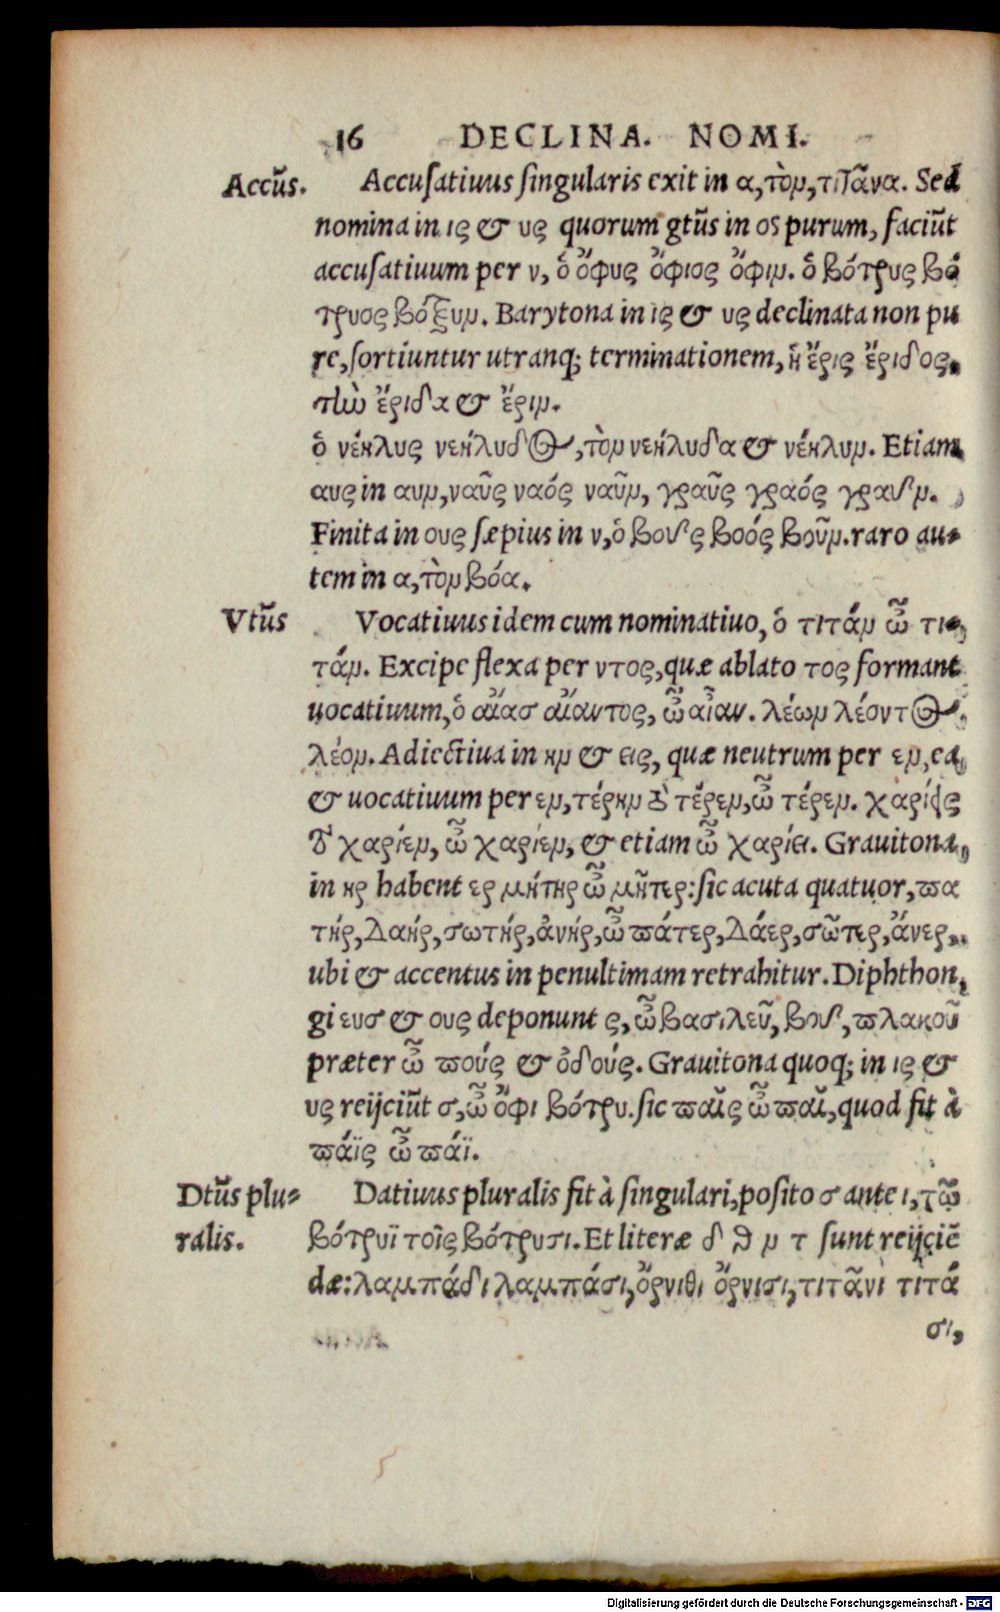 16 DECLINA. NOMI.
Accũs. Accusatiuus singularis exit in α, τὸν, τιτᾶνα. Sed
nomina in ις & υς quorum gtũs in os purum, faciũt
accusatiuum per ν, ὁ ὄφυς ὄφιος ὄφιν. ὁ βότρυς βό
τρυος βότρυν. Barytona in ις & υς declinata non pu
re, sortiuntur utranq; terminationem, ἡ ἔρις ἔριδος,
τὴν ἔριδα & ἔριν.
ὁ νέκλυς νεκλυδος, τὸν νεκλυδα & νέκλυν. Etiam
αυς in αυν, ναῦς ναός ναῦν, γραῦς γραός γραῦν.
Finita in ους sæpius in ν, ὁ βοῦς βοός βοῦν. raro au-
tem in α, τὸν βόα.
Vtũs Vocatiuus idem cum nominatiuo, ὁ τιτάν ὦ τι-
τάν. Excipe flexa per ντος, quæ ablato τος formant
uocatiuum, ὁ αἴασ αἴαντος, ὦ αἶαν. λέων λέοντος,
λέον. Adiectiua in ην & εις, quæ neutrum per εν, ea
& uocatiuum per εν, τέρην τὸ τέρεν, ὦ τέρεν. χαρίεις
τὸ χαρίεν, ὦ χαρίεν, & etiam ὦ χαρίει. Grauitona,
in ηρ habent ερ μήτηρ ὦ μῆτερ: sic acuta quatuor, πα
τήρ, Δαήρ, σωτήρ, ἀνήρ, ὦ πάτερ, Δάερ, σῶτερ, ἄνερ,
ubi & accentus in penultimam retrahitur. Diphthon,
gi ευσ & ους deponunt ς, ὦ βασιλεῦ, βοῦ, πλακοῦ
præter ὦ πούς & ὀδούς. Grauitona quoq; in ις &
υς reijciũt σ, ὦ ὄφι βότρυ. sic παῖς ὦ παῖ, quod fit à
πάϊς ὦ πάϊ.
Dtũs plu- Datiuus pluralis fit à singulari, posito σ ante ι, τῷ
ralis. βότρυϊ τοῖς βότρυσι. Et literæ δ θ ν τ sunt reijciẽ
dæ: λαμπάδι λαμπάσι, ὄρνιθι ὄρνισι, τιτᾶνι τιτά
σι,
Digitalisierung gefördert durch die Deutsche Forschungsgemeinschaft - DFG